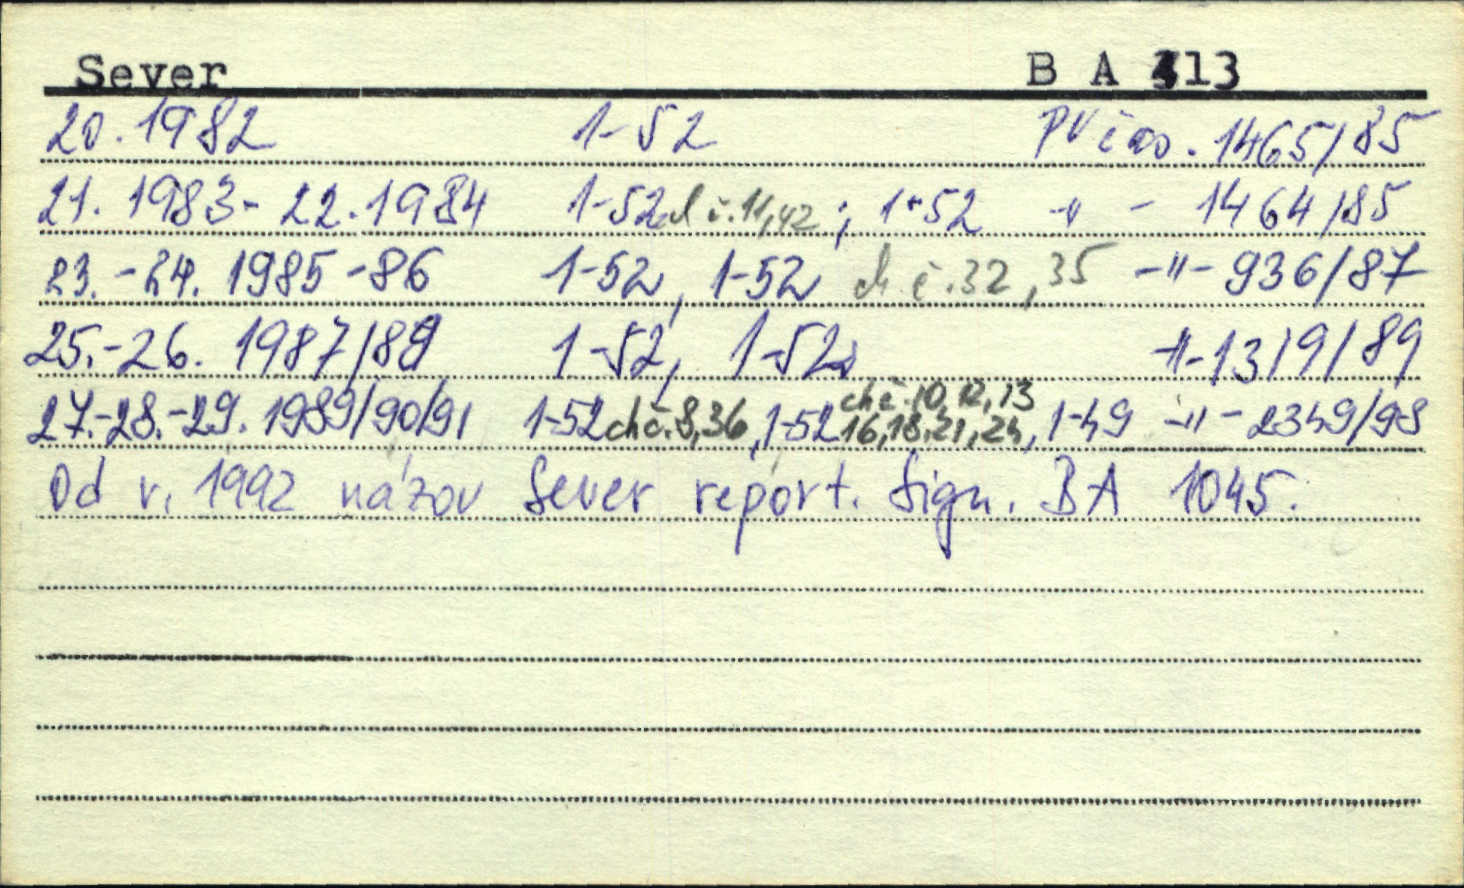 Sever B A 313
20. 1982 1-52 PV čas. 1465/85
21. 1983- 22. 1984 1-52 ch č. 11,42 ; 1-52 -"- 1464/85
23.-24. 1985-86 1-52, 1-52 ch č. 32, 35 -"- 936/87
25.-26. 1987/88 1-52, 1-52 -"- 1319/89
27.-28.-29. 1989/90/91 1-52 ch č. 8,36, 1-52 ch č. 10, 12, 13 16, 18, 21, 24, 1-49 -"- 2349/98
Od r. 1992 názov Sever report. Sign. BA 1045.